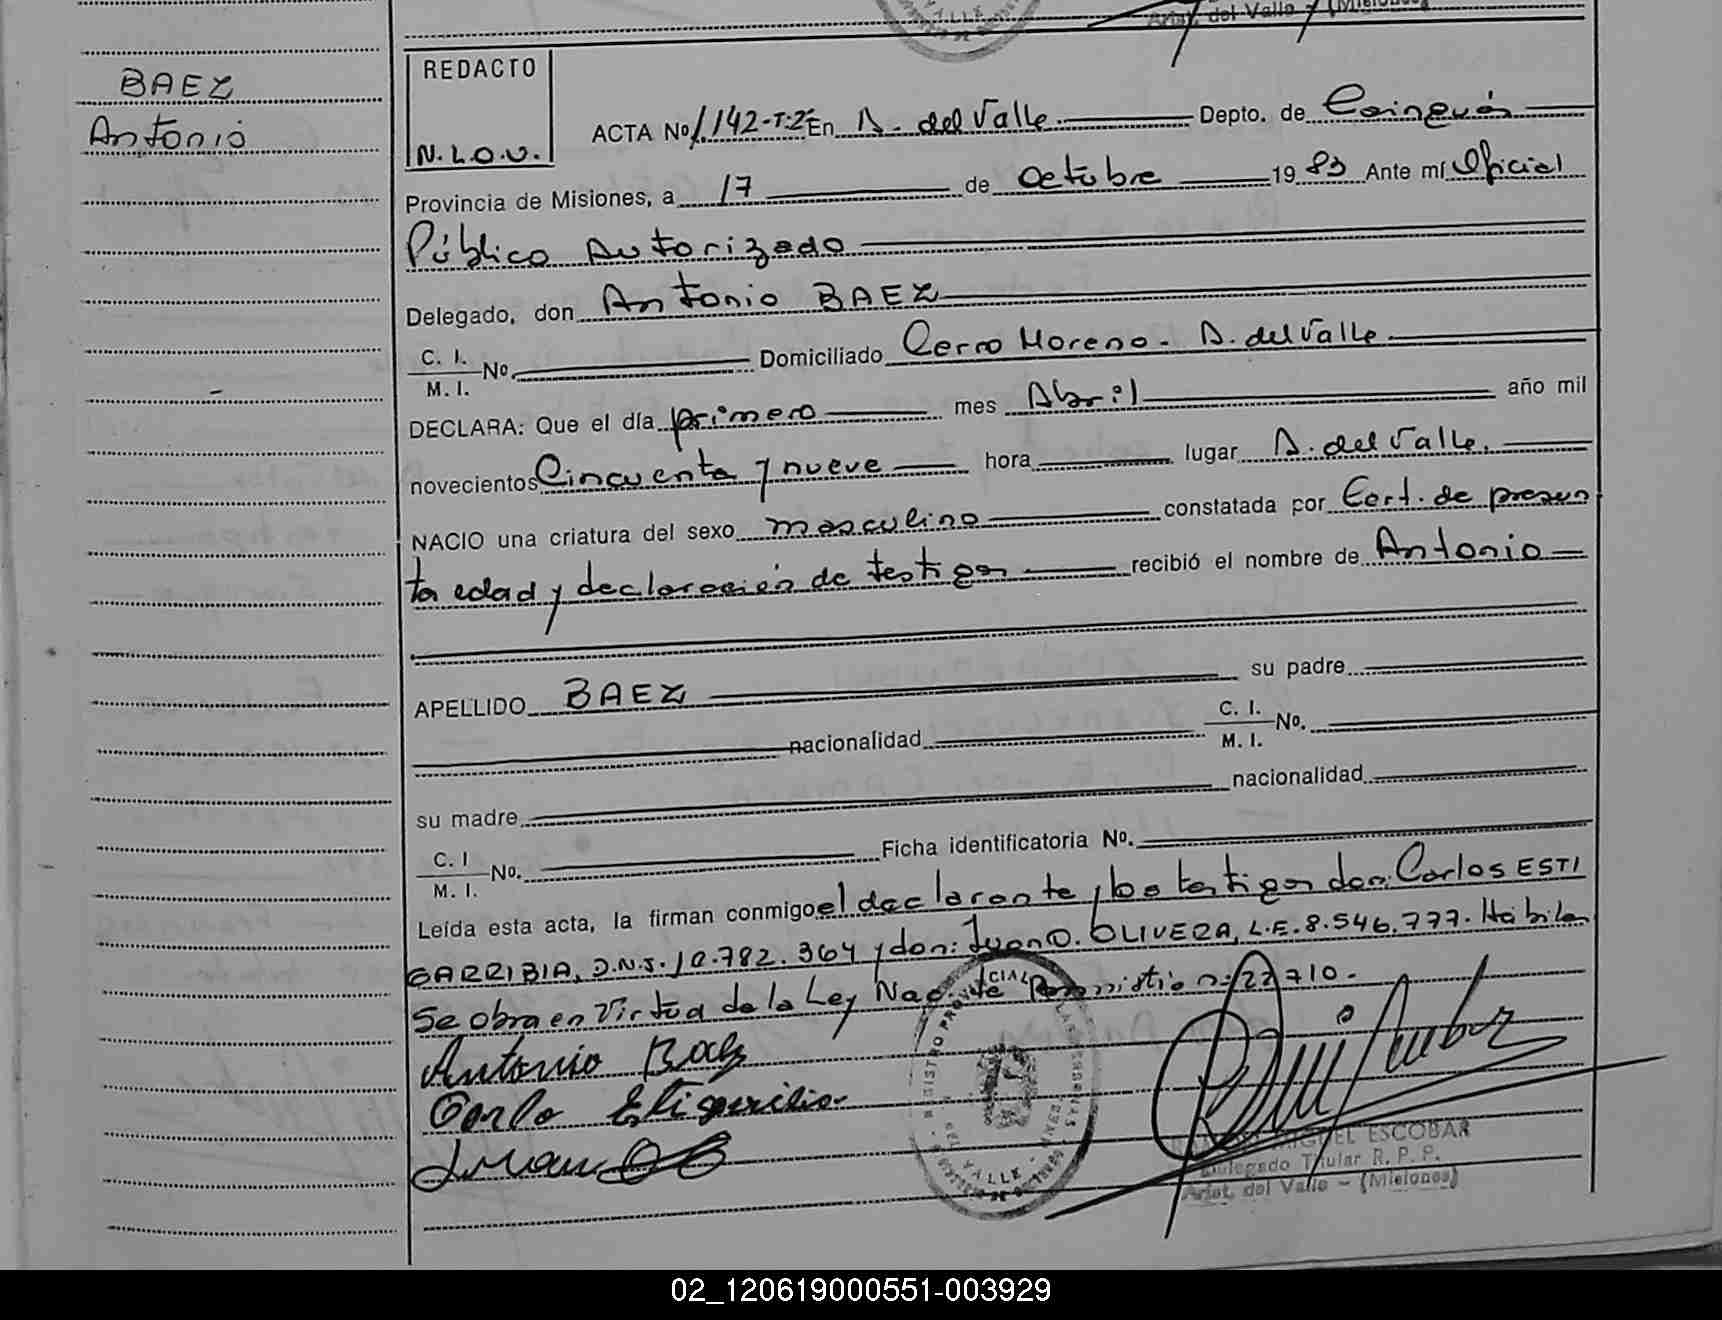 Arist. del Valle - (Misiones)
BAEZ
Antonio
REDACTO
N.L.O.U.
ACTA Nº 1.142-T:2º En A. del Valle Depto. de Cainguás
Provincia de Misiones, a 17 de Octubre 1983 Ante mí Oficial
Público Autorizado
Delegado, don Antonio BAEZ
C. I. / M. I. Nº Domiciliado Cerro Moreno - A. del Valle
DECLARA: Que el día primero mes Abril año mil
novecientos Cincuenta y nueve hora lugar A. del Valle.
NACIO una criatura del sexo masculino constatada por Cert. de presun
ta edad y declaración de testigos recibió el nombre de Antonio
APELLIDO BAEZ su padre
nacionalidad C. I. / M. I. Nº.
su madre nacionalidad
C. I / M. I. Nº. Ficha identificatoria Nº.
Leída esta acta, la firman conmigo el declarante y los testigos don: Carlos ESTI
GARRIBIA, D.N.I. 10.782.364 y don: Juan O. OLIVERA, L.E. 8.546.777. Hábiles
Se obra en Virtud de la Ley Nac. de Amnistía nº 22710.-
Antonio Baez
Juan
MIGUEL ESCOBAR
Delegado Titular R. P. P.
Arist. del Valle - (Misiones)
02_120619000551-003929